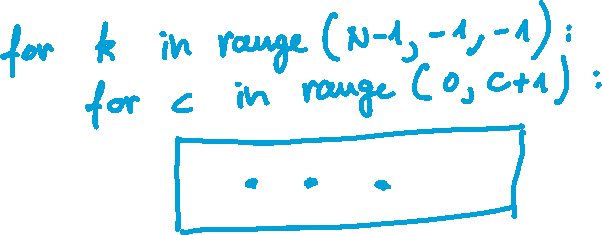 for k in range (N-1, -1, -1):
for c in range (0, c+1):
...